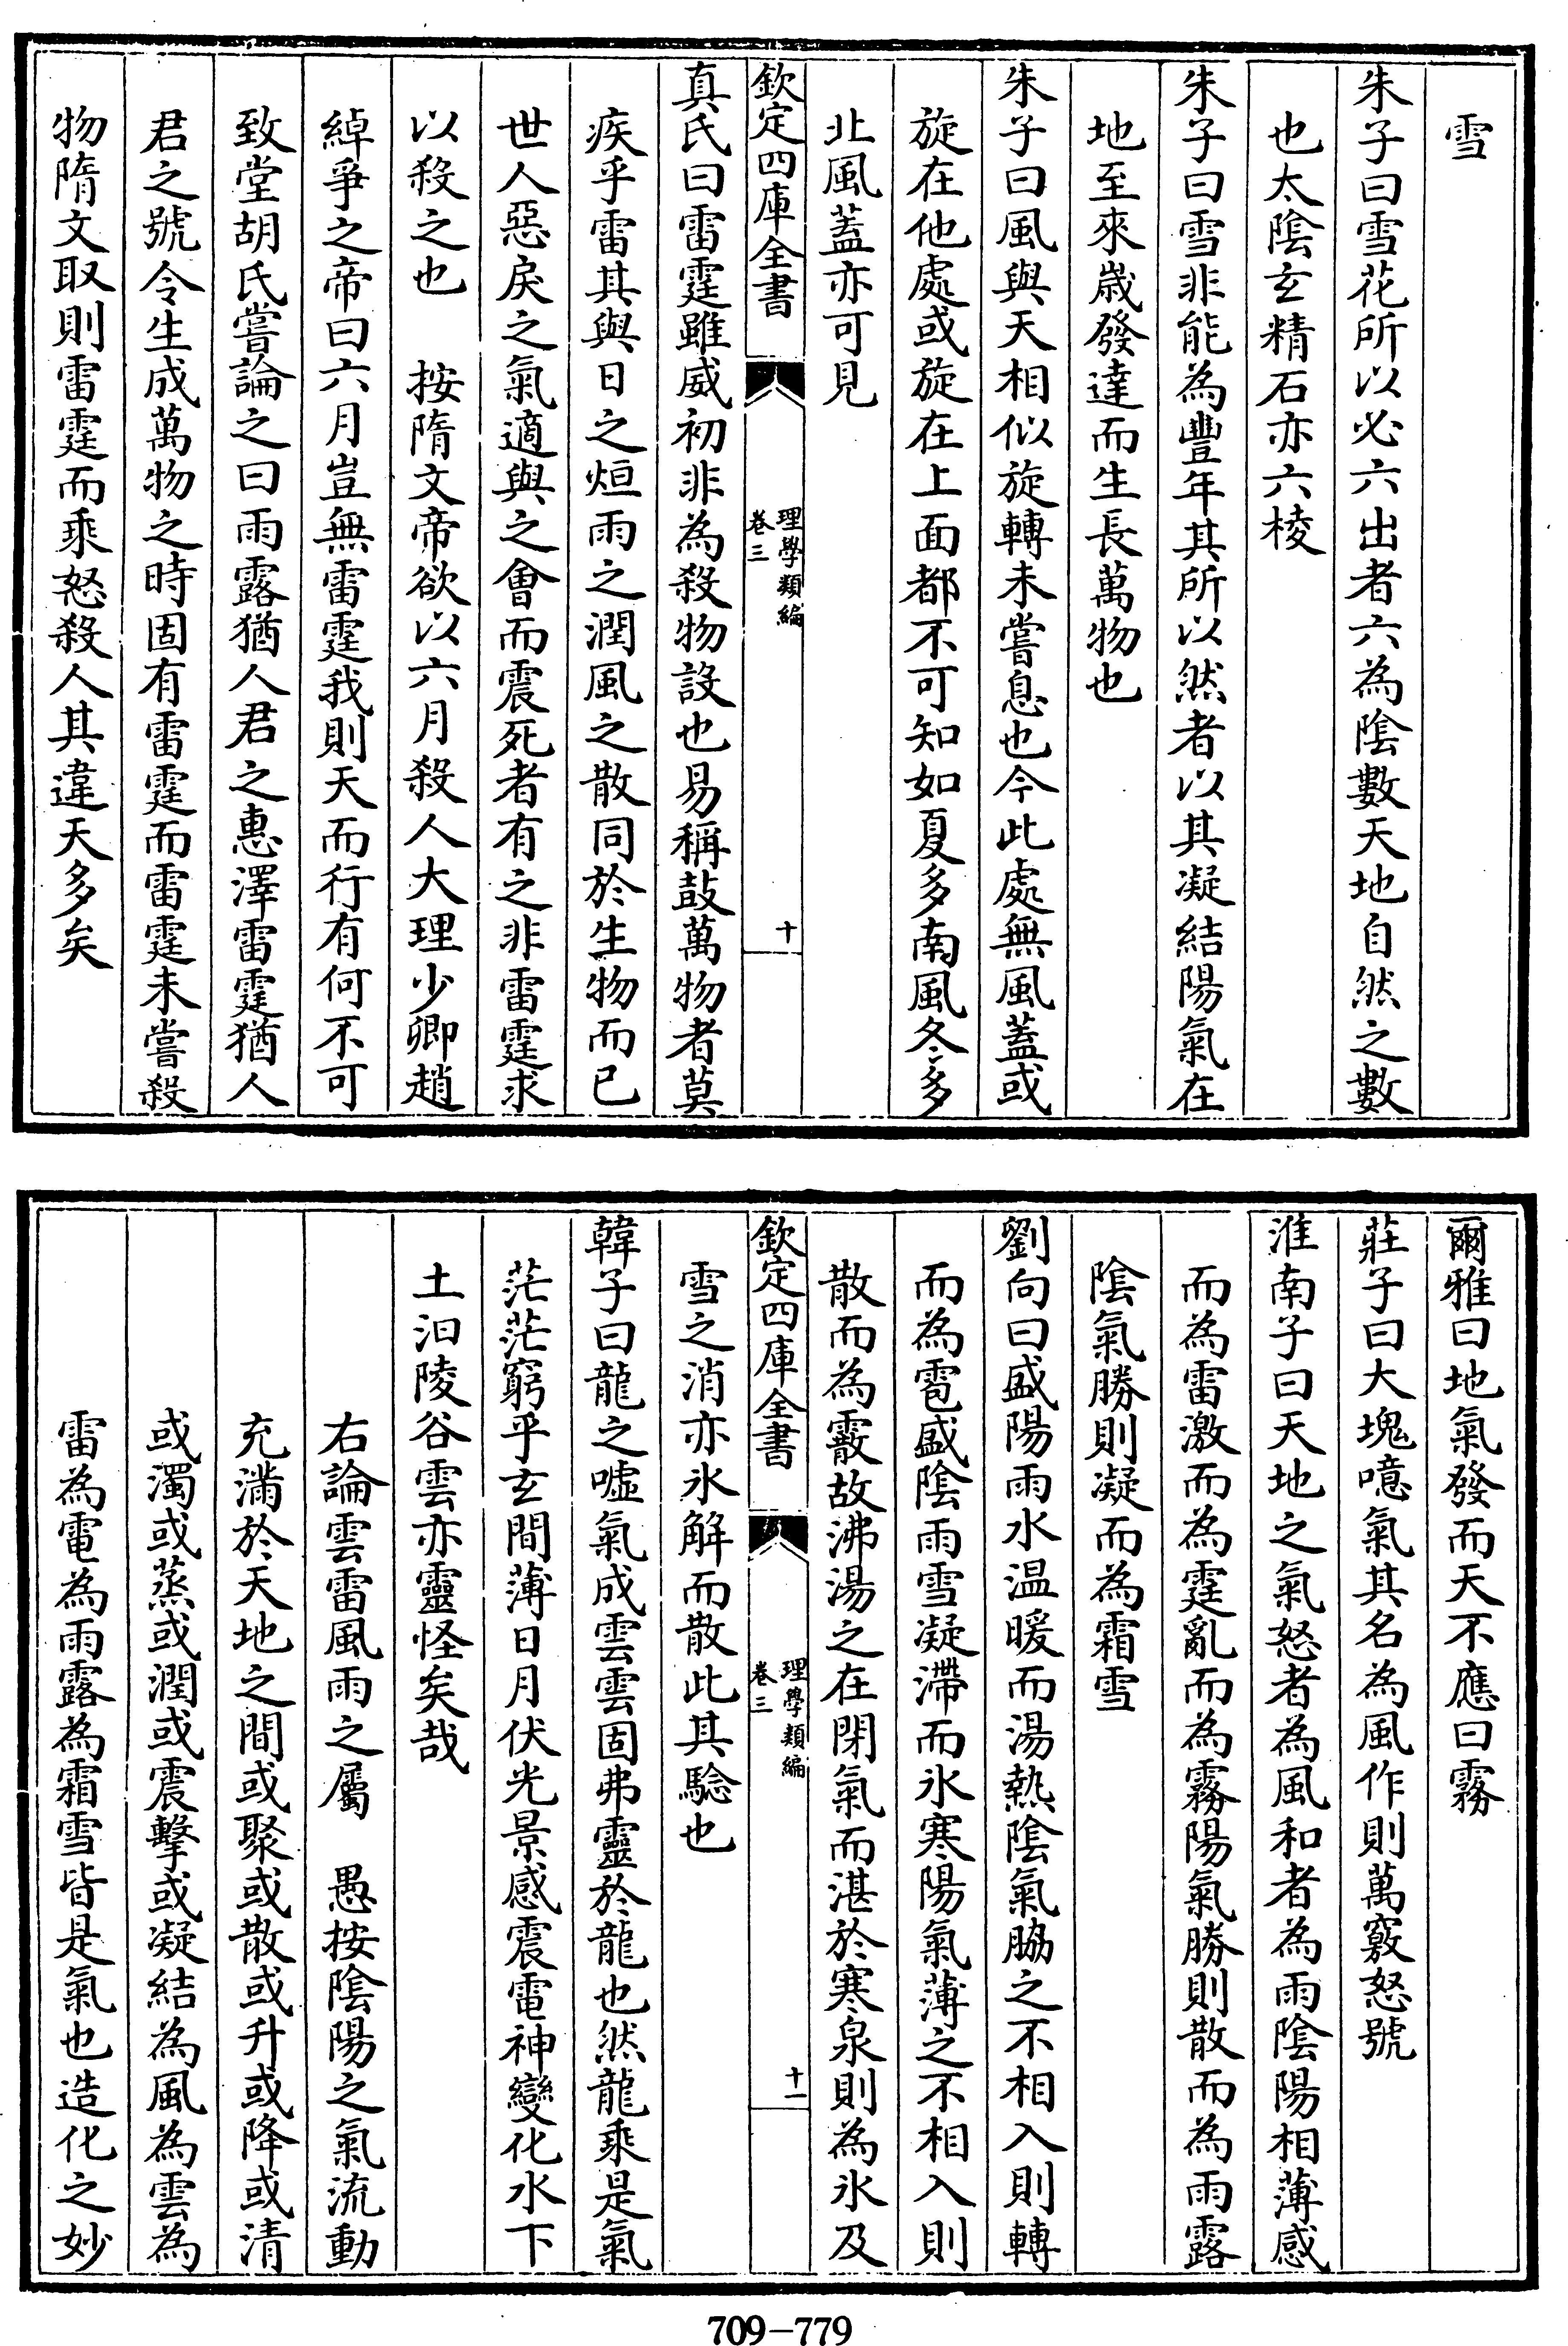 雪
朱子曰雪花所以必六出者六為陰數天地自然之數
也太陰玄精石亦六棱
朱子曰雪非能為豐年其所以然者以其凝結陽氣在
地至來歲發達而生長萬物也
朱子曰風與天相似旋轉未嘗息也今此處無風蓋或
旋在他處或旋在上面都不可知如夏多南風冬多
北風蓋亦可見
欽定四庫全書
理學類編
卷三
十
真氏曰雷霆雖威初非為殺物設也易稱鼓萬物者莫
疾乎雷其與日之烜雨之潤風之散同於生物而已
世人惡戾之氣適與之會而震死者有之非雷霆求
以殺之也 按隋文帝欲以六月殺人大理少卿趙
綽爭之帝曰六月豈無雷霆我則天而行有何不可
致堂胡氏嘗論之曰雨露猶人君之惠澤雷霆猶人
君之號令生成萬物之時固有雷霆而雷霆未嘗殺
物隋文取則雷霆而乘怒殺人其違天多矣
爾雅曰地氣發而天不應曰霧
莊子曰大塊噫氣其名為風作則萬竅怒號
淮南子曰天地之氣怒者為風和者為雨陰陽相薄感
而為雷激而為霆亂而為霧陽氣勝則散而為雨露
陰氣勝則凝而為霜雪
劉向曰盛陽雨水温暖而湯熱陰氣脇之不相入則轉
而為雹盛陰雨雪凝滯而氷寒陽氣薄之不相入則
散而為霰故沸湯之在閉氣而湛於寒泉則為氷及
欽定四庫全書
理學類編
卷三
十一
雪之消亦氷解而散此其驗也
韓子曰龍之噓氣成雲雲固弗靈於龍也然龍乘是氣
茫茫窮乎玄間薄日月伏光景感震電神變化水下
土汩陵谷雲亦靈怪矣哉
右論雲雷風雨之屬 愚按陰陽之氣流動
充滿於天地之間或聚或散或升或降或清
或濁或蒸或潤或震擊或凝結為風為雲為
雷為電為雨露為霜雪皆是氣也造化之妙
709-779